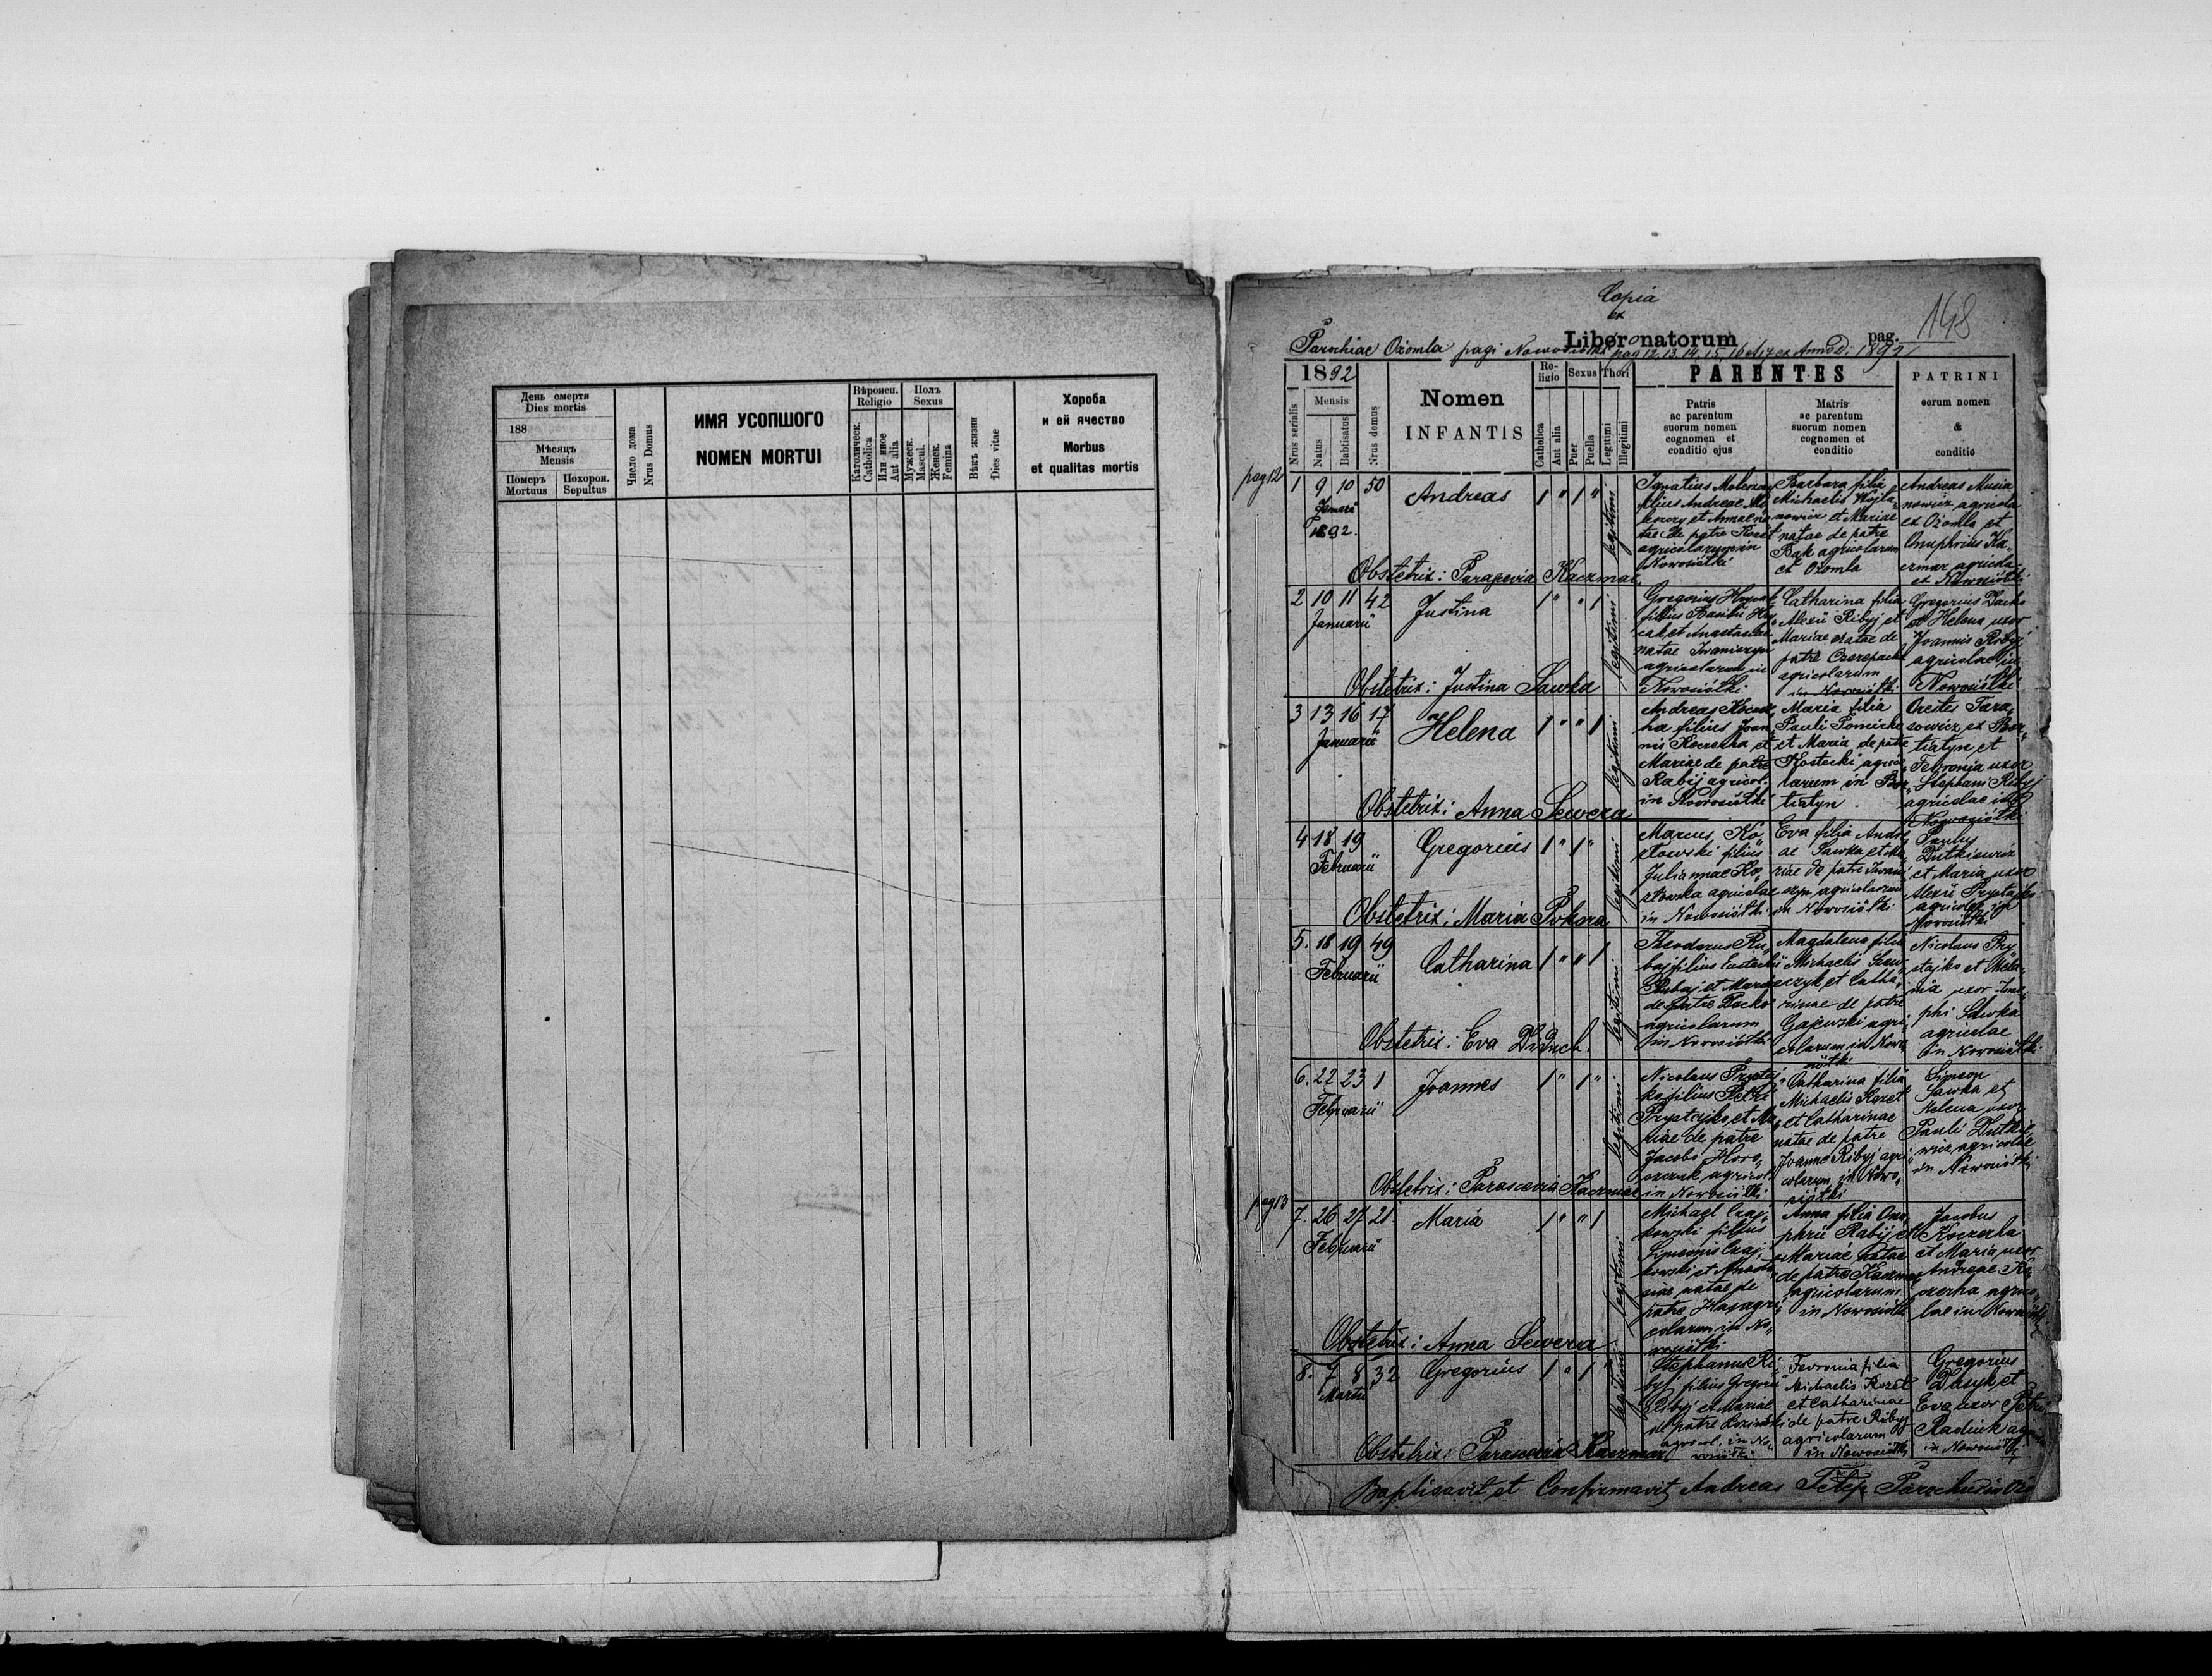 День смерти
Dies mortis
188
Мѣсяцъ
Mensis
Померъ
Mortuus
Похорон.
Sepultus
Число дома
Nrus Domus
ИМЯ УСОПШОГО
NOMEN MORTUI
Вѣроисп.
Religio
Католическ.
Catholica
Или иное
Aut alia
Полъ
Sexus
Мужеск.
Mascul.
Женск.
Femina
Вѣкъ жизни
Dies vitae
Хороба
и ей ячество
Morbus
et qualitas mortis
Copia
ex
148
Liber natorum pag.
Parochiae Ożomla pagi Nowosiółki pag 12, 13, 14, 15, 16 et 17 ex Anno D: 1892
1892
Nrus serialis
Mensis
Natus
Babtisatus
Nrus domus
Nomen
INFANTIS
Religio
Catholica
Aut alia
Sexus
Puer
Puella
Thori
Legitimi
Illegitimi
PARENTES
Patris
ac parentum
suorum nomen
cognomen et
conditio ejus
Matris
ac parentum
suorum nomen
cognomen et
conditio
PATRINI
eorum nomen
&
conditio
pag 12
1 9 10 50 Andreas 1 " 1 " legitimi
Januarii
1892.
Ignatius
filius Andreae
et Annae na
tae de patre Kozet
agricolarum in
Nowosiółki
Barbara filia
Michaelis Wojta
nowicz et Mariae
natae de patre
Bak agricolarum
ex Ożomla
Andreas Musia
nowicz agricola
ex Ożomla et
Onuphrius Ka
czmar agricola
ex Nowosiółki
Obstetrix: Parascevia Kaczmar
2 10 11 42 Justina 1 " " 1 legitimi
Januarii
Gregorius
filius
et Anastasiae
natae Iwaniszyn
agricolarum in
Nowosiółki
Catharina filia
Alexii Ribyj et
Mariae natae de
patre Czerepacha
agricolarum
in Nowosiółki
Gregorius Dacko
et Helena uxor
Joannis Ribyj
agricolae in
Nowosiółki
Obstetrix: Justina Sawka
3 13 16 17 Helena 1 " " 1 legitimi
Januarii
Andreas Koczer
ha filius Joan
nis Koczerha et
Mariae de patre
Rabij agricol.
in Nowosiółki
Maria filia
Pauli
et Maria de patre
Kostecki agrico
larum in Bor
tiatyn.
Orestes Tara
sowicz ex Bor
tiatyn et
Fevronia uxor
Stephani Ribyj
agricolae in
Nowosiółki
Obstetrix: Anna Sewera
4 18 19 Gregorius 1 " 1 " legitimi
Februarii
Marcus Ko
złowski filius
Juliannae Ko
złowska agricolae
in Nowosiółki
Eva filia Andre
ae Sawka et Ma
riae de patre Iwani
szyn agricolarum
in Nowosiółki
Paulus
Dutkiewicz
et Maria uxor
Alexii Prystajko
agricolae in
Nowosiółki
Obstetrix: Maria Pokora
5. 18 19 49 Catharina 1 " " 1 legitimi
Februarii
Theodorus Ru
baj filius Eustachii
Rubaj et Mariae
de patre Dacko
agricolarum
in Nowosiółki
Magdalena filia
Michaelis
czyk et Catha
rinae de patre
Gajewski agri
colarum in Nowo
siółki
Nicolaus Pry
stajko et Mela
nia uxor Jose
phi Sawka
agricolae
in Nowosiółki
Obstetrix: Eva Diduch.
6. 22 23 1 Joannes 1 " 1 " legitimi
Februarii
Nicolaus Prystaj
ko filius Petri
Prystajko et Ma
riae de patre
Jacobo Horo
szczuk agricol.
in Nowosiółki
Catharina filia
Michaelis Kozet
et Catharinae
natae de patre
Joanne Ribyj agri
colarum in Nowo
siółki
Simeon
Sawka et
Helena uxor
Pauli Dutkie
wicz agricolae
in Nowosiółki
Obstetrix: Parascevia Kaczmar
pag 13
7. 26 27 21. Maria 1 " " 1 legitimi
Februarii
Michael Czaj
kowski filius
Simeonis Czaj
kowski et Anasta
siae natae de
patre Hap agri
colarum in No
wosiółki
Anna filia Onu
phrii Rabij et
Mariae natae
de patre Kaczmar
agricolarum
in Nowosiółki
Jacobus
Koczerha
et Maria uxor
Andreae Ko
czerha agrico
lae in Nowosiółki
Obstetrix: Anna Sewera
8. 7 8 32 Gregorius 1 " 1 " legitimi
Martii
Stephanus Ri
byj filius Gregorii
Ribyj et Mariae
de patre
agricol. in No
wosiółki
Fevronia filia
Michaelis Kozet
et Catharinae
de patre Ribyj
agricolarum
in Nowosiółki
Gregorius
Dasyk et
Eva uxor Petri
Radiuk
in Nowosiółki
Obstetrix: Parascevia Kaczmar
Baptisavit et Confirmavit Andreas Parochus in